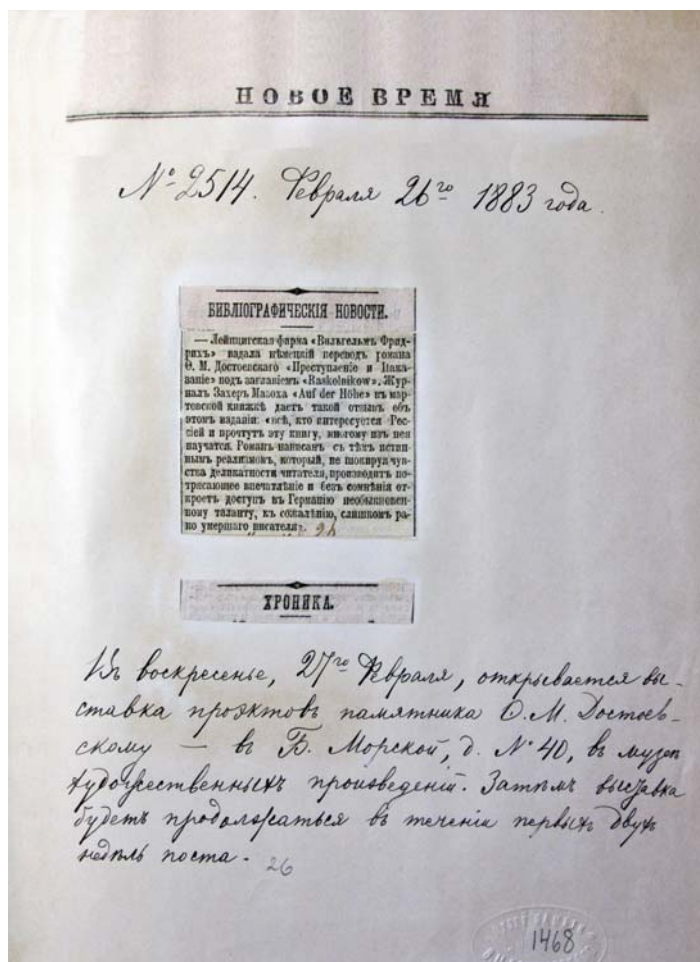 НОВОЕ ВРЕМЯ
№ 2514. Февраля 26го 1883 года.
БИБЛІОГРАФИЧЕСКІЯ НОВОСТИ.
— Лейпцигская фирма «Вильгельмъ Фрид-
рихъ» издала нѣмецкій переводъ романа
Ѳ. М. Достоевскаго «Преступленіе и Нака-
заніе» подъ заглавіемъ «Raskolnikow». Жур-
налъ Захеръ Мазоха «Auf der Höhe» въ мар-
товской книжкѣ даетъ такой отзывъ объ
этомъ изданіи: «всѣ, кто интересуется Рос-
сіей и прочтутъ эту книгу, многому изъ нея
научатся. Романъ написанъ съ тѣмъ истин-
нымъ реализмомъ, который, не шокируя чув-
ства деликатности читателя, производитъ по-
трясающее впечатлѣніе и безъ сомнѣнія от-
кроетъ доступъ въ Германію необыкновен-
ному таланту, къ сожалѣнію, слишкомъ ра-
но умершаго писателя».
26
ХРОНИКА.
Въ воскресенье, 27го Февраля, открывается вы-
ставка проэктовъ памятника Ѳ. М. Достоев-
скому — въ Б. Морской, д. № 40, въ музеѣ
художественныхъ произведеній. Затѣмъ выставка
будетъ продолжаться въ теченіи первыхъ двухъ
недѣль поста.
26
1468